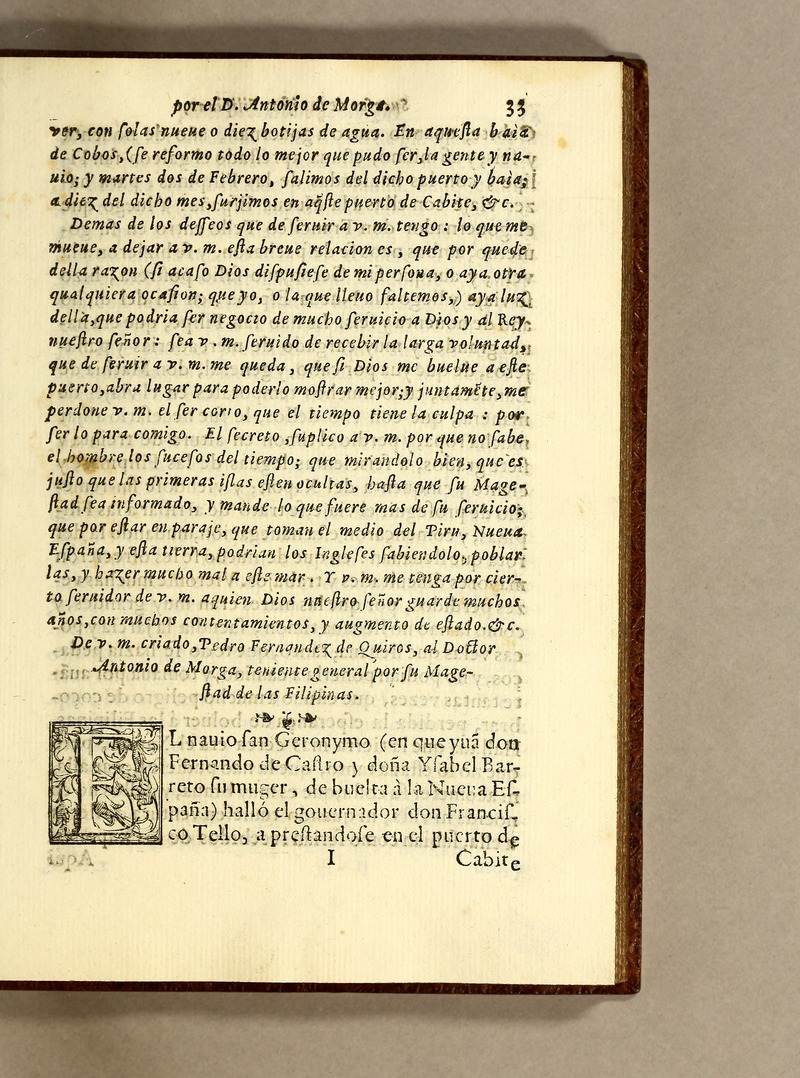 por el D. Antonio de Morga. 33
ver, con ſolas nueue o diez botijas de agua. En aqueſta baia
de Cobos, (ſe reformo todo lo mejor que pudo ſer, la gente y na-
uio; y martes dos de Febrero, ſalimos del dicho puerto y baia;
a diez del dicho mes, ſurjimos en aq̃ſte puerto de Cabite, &c.
Demas de los deſſeos que de ſeruir a v. m. tengo : lo que me
mueue, a dejar a v. m. eſta breue relacion es, que por quede
della razon (ſi acaſo Dios diſpuſieſe de mi perſona, o aya otra
qualquiera ocaſion; que yo, o la que lleuo faltemos,) aya luz
della, que podria ſer negocio de mucho ſeruicio a Dios y al Rey
nueſtro ſeñor : ſea v. m. ſeruido de recebir la larga voluntad,
que de ſeruir a v. m. me queda, que ſi Dios me buelue a eſte
puerto, abra lugar para poderlo moſtrar mejor; y juntamẽte, me
perdone v. m. el ſer corto, que el tiempo tiene la culpa : por
ſer lo para comigo. El ſecreto, ſuplico a v. m. por que no ſabe
el hombre los ſuceſos del tiempo; que mirandolo bien, que es
juſto que las primeras iſlas eſten ocultas, haſta que ſu Mage-
ſtad ſea informado, y mande lo que fuere mas de ſu ſeruicio;
que por eſtar en paraje, que toman el medio del Piru, Nueua
Eſpaña, y eſta tierra, podrian los Ingleſes ſabiendolo, poblar
las, y hazer mucho mal a eſte mar. Y v. m. me tenga por cier-
to ſeruidor de v. m. aquien Dios nueſtro ſeñor guarde muchos
años, con muchos contentamientos, y augmento de eſtado. &c.
De v. m. criado, Pedro Fernandez de Quiros, al Doctor
Antonio de Morga, teniente general por ſu Mage-
ſtad de las Filipinas.
EL nauio ſan Geronymo (en que yuã don
Fernando de Caſtro y doña Yſabel Bar-
reto ſu muger, de buelta à la Nueua Eſ-
paña) halló el gouernador don Franciſ-
co Tello, a preſtandoſe en el puerto de
I Cabite